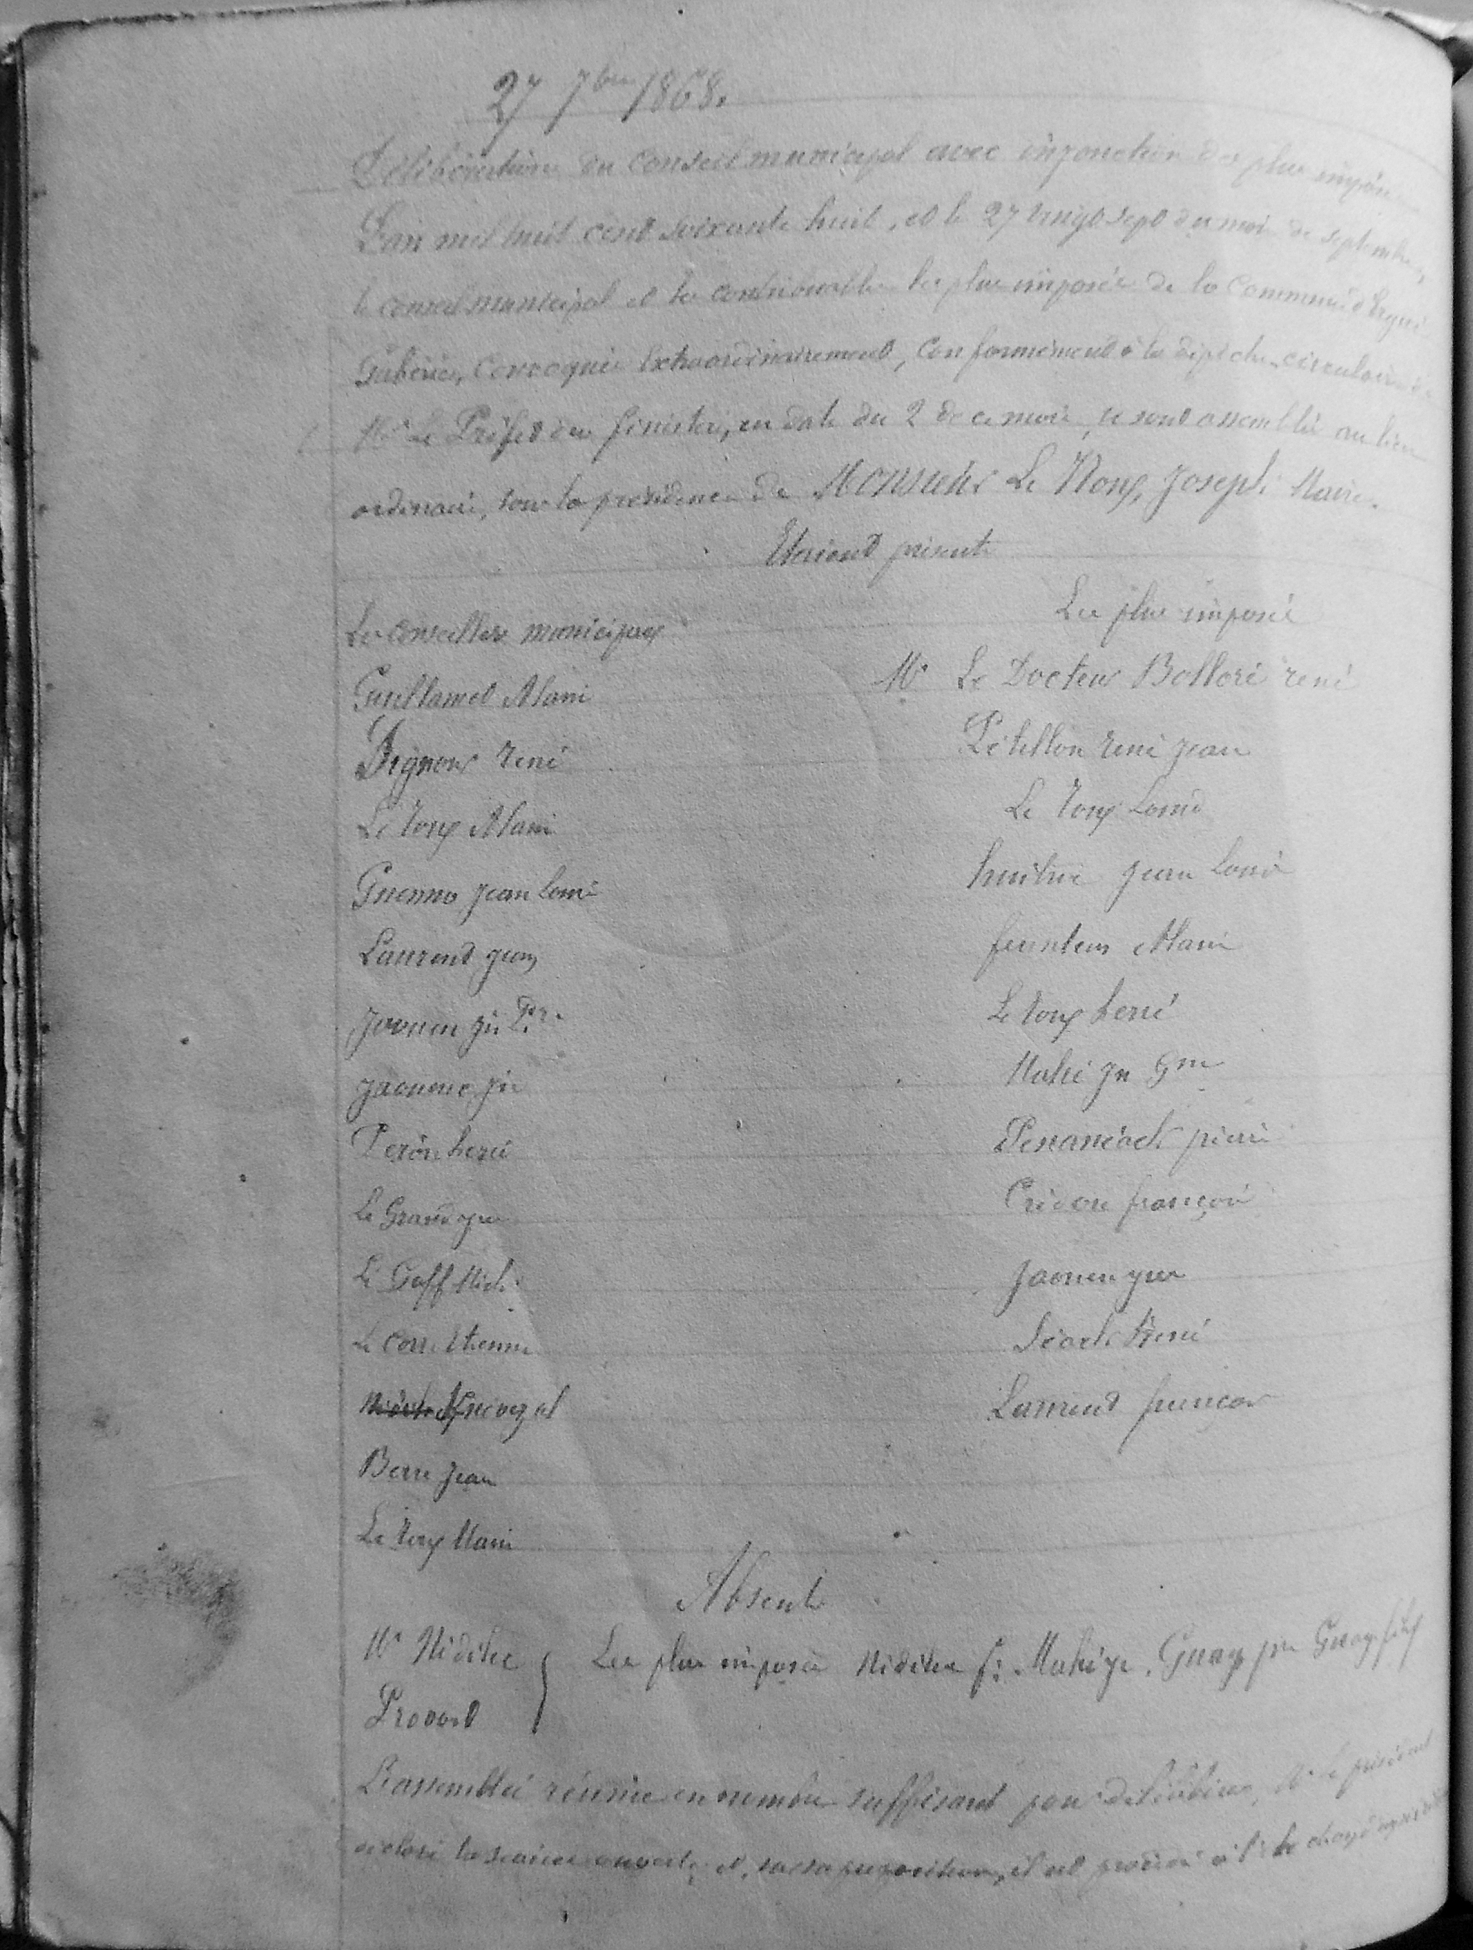 27 7bre 1868.
Délibération du Conseil municipal avec injonction des plus imposés
L'an mil huit cent soixante huit, et le 27 vingt sept du mois de septembre,
le conseil municipal et les contribuables les plus imposés de la Commune d'Ergué
Gabéric, convoqués extraordinairement, conformément à la dépêche circulaire de
Mr Le Préfet du finistère, en date du 2 de ce mois, se sont assemblés au lieu
ordinaire, sous la présidence de Monsieur Le Roux, Joseph Maire.
Etaient présents
Les conseillers municipaux
Guillamet Alain
Pignour René
Le Roux Alain
Guenno Jean Louis
Laurent Jean
Jaouen Jn Pre
Jaouen Jn
Peron hervé
Le Grand
Le Goff Mich
Le Corre Etienne
Berre Jean
Le Roux Alain
Les plus imposés
Mr Le Docteur Bolloré rené
Pétillon René Jean
Le Roux Louis
huitric Jean Louis
feunteun Alain
Le Roux hervé
Mahé Jn Gme
Penanéach pierre
Crédou françois
Jaouen
Séach hervé
Laurent françois
Absents
Mr Nédélec
Provost
Les plus imposés Nédélec f: Mahé
L'assemblée réunie en nombre suffisant pour délibérer, Mr le président
déclare la séance ouverte, et, sur sa proposition, il est procédé à